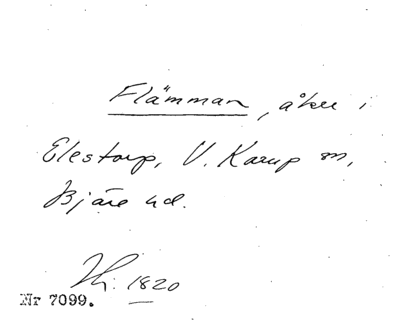 Flämman, åker i
Elestorp, V. Karup sn,
Bjäre hd.
Hs. 1820
Nr 7099.